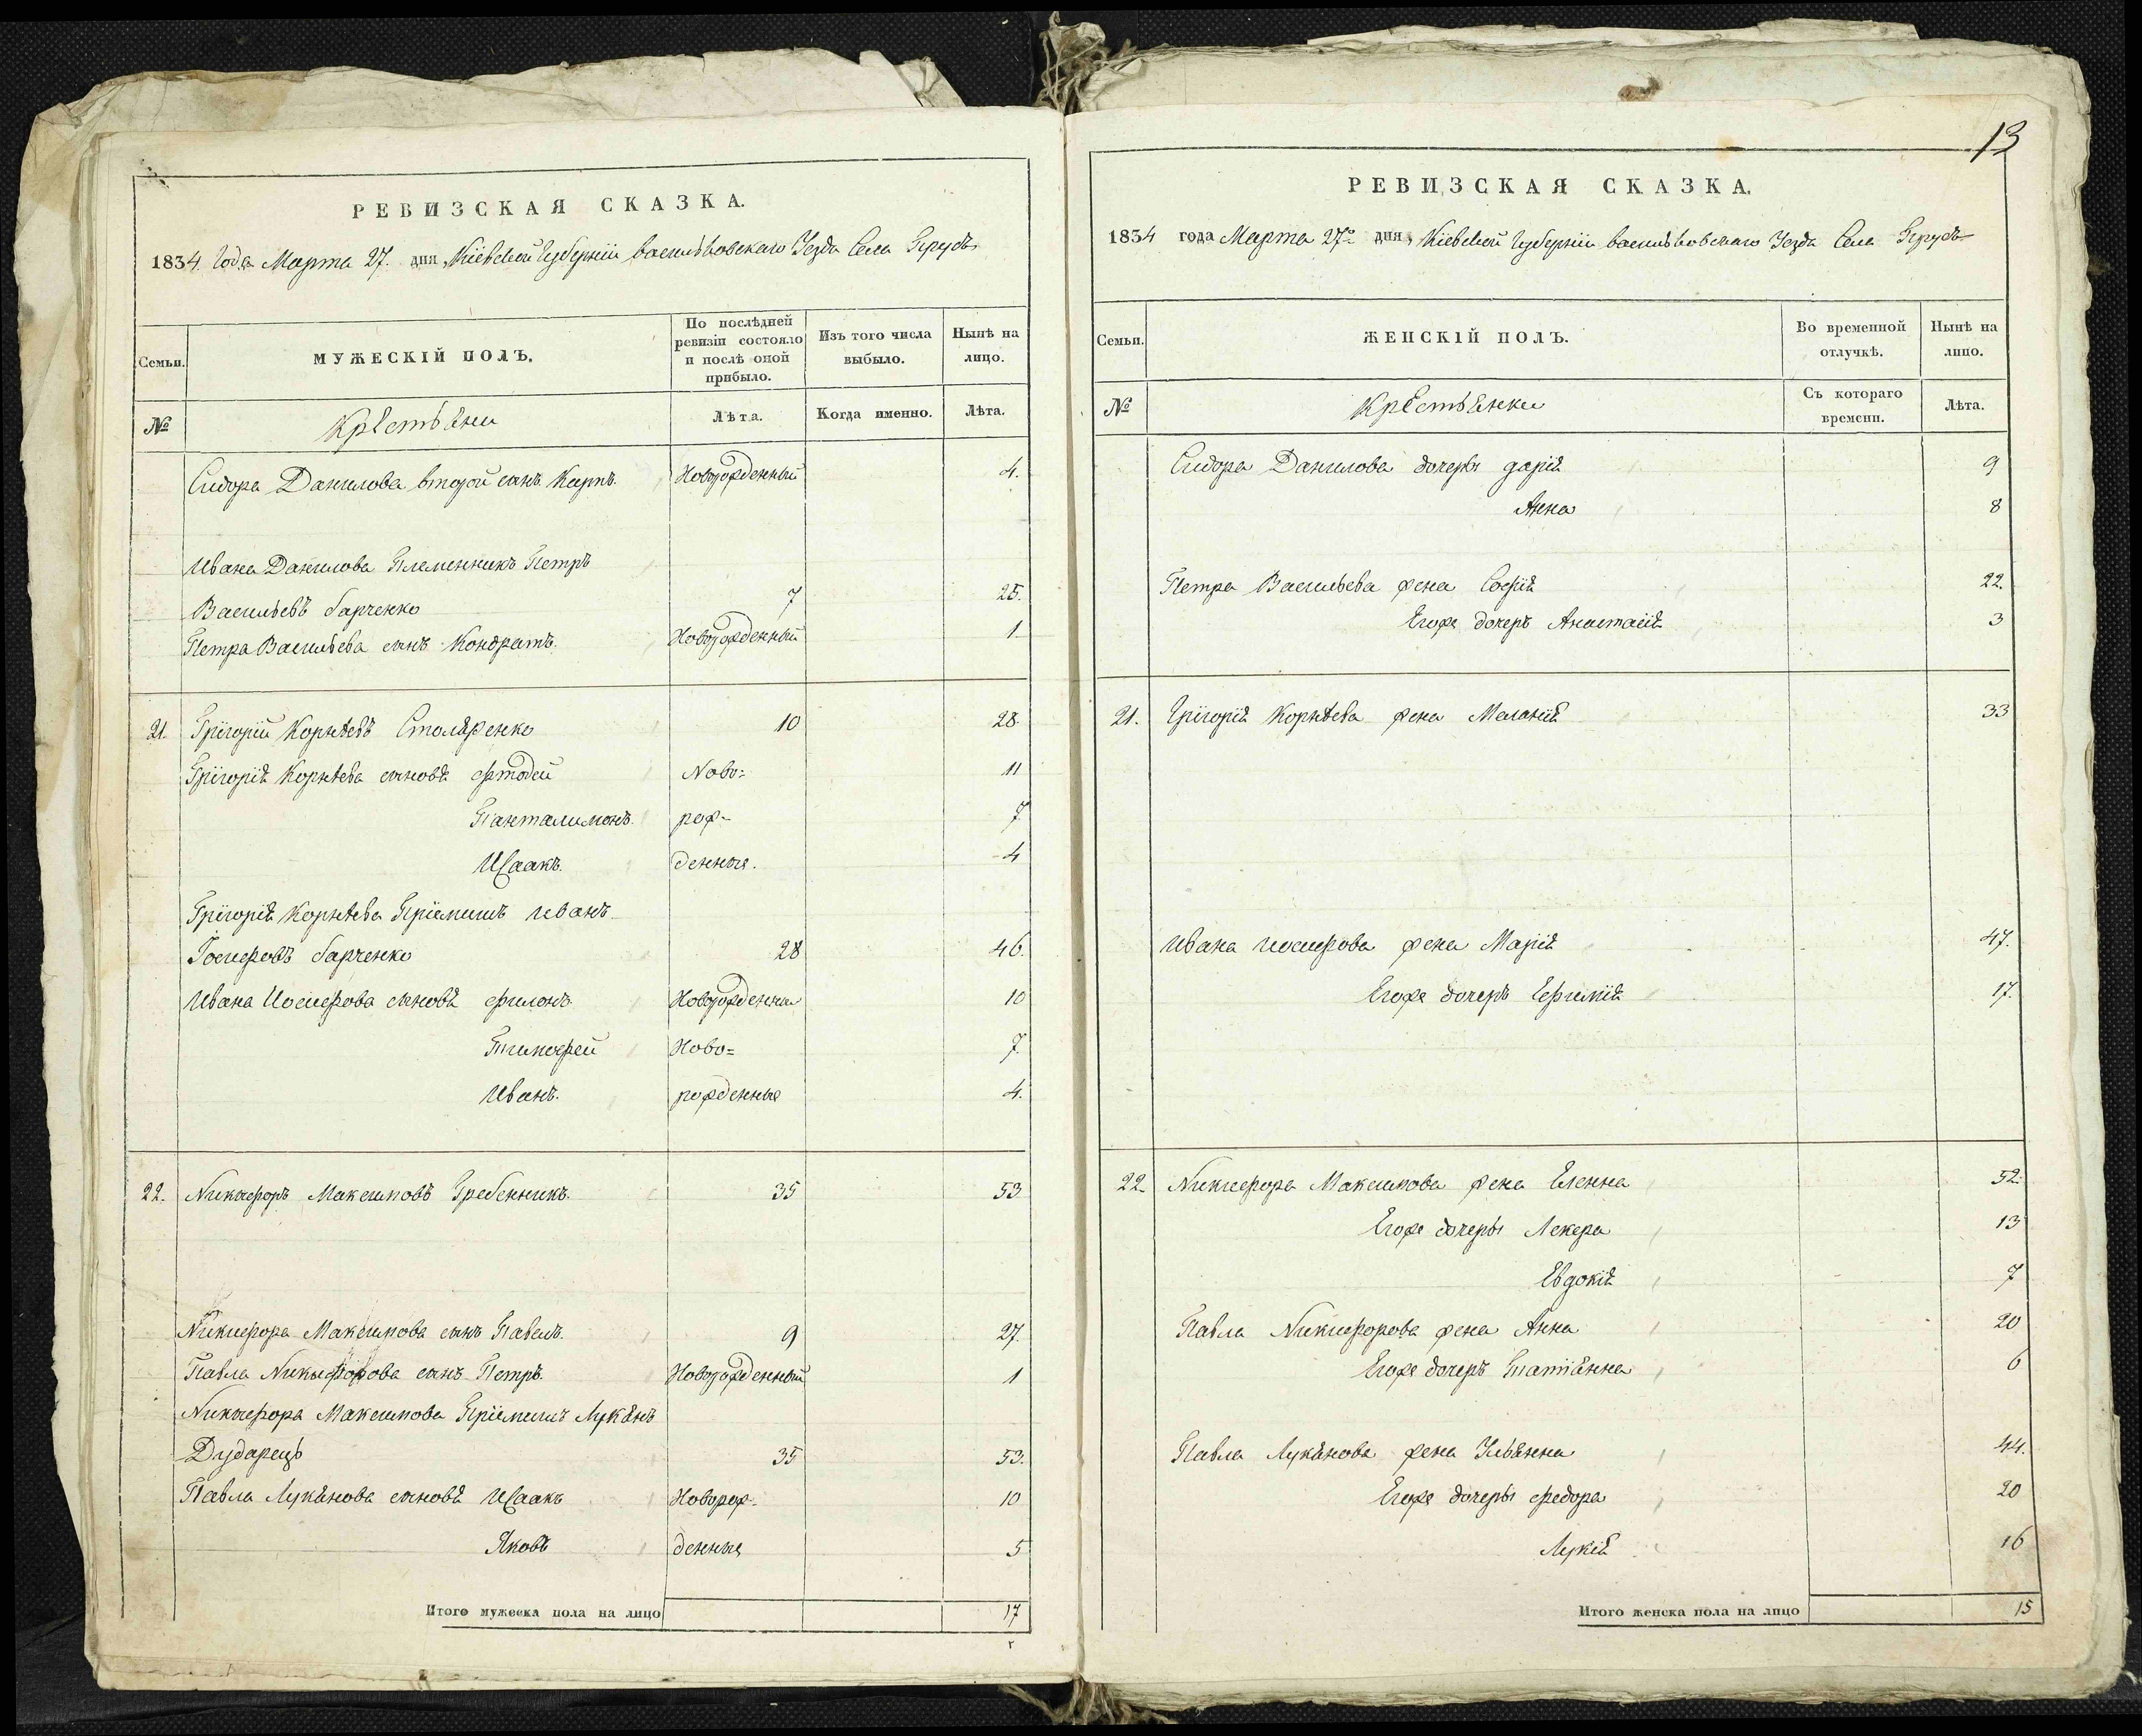 РЕВИЗСКАЯ СКАЗКА.
1834. Года Марта 27. дня, Кіевской Губерніи васильковскаго Уезда Села Прусъ
Семьи.
МУЖЕСКІЙ ПОЛЪ.
По послѣдней ревизіи состояло и послѣ оной прибыло.
Изъ того числа выбыло.
Нынѣ на лицо.
№
Крестьяни
Лѣта.
Когда именно.
Лѣта.
Сидора Данилова второй сынъ Карпъ. Новорожденный 4.
Ивана Данилова Племенникъ Петръ
Васильевъ барченко 7 25.
Петра Васильева сынъ Кондратъ. Новорожденный 1
21. Григорій Корнѣевъ Столяренко 10 28.
Григорія Корнѣева сыновя Фтодей Ново= 11
Панталимонъ. рож- 7
Исаакъ. денные. 4
Григорія Корнѣева Пріемишъ иванъ
Іосифовъ барченко 28 46.
Ивана Иосифова сыновя филонъ Новорожденны 10
Тимофей Ново= 7.
Иванъ. рожденные 4.
22. Никифоръ Максимовъ Гребенникъ. 35 53
Никифора Максимова сынъ Павелъ. 9 27.
Павла Никифорова сынъ Петръ. Новорожденный 1
Никифора Максимова Пріемишъ Лукянъ
Дударець 35 53.
Павла Лукянова сыновя Исаакъ Новорож- 10
Яковъ денные 5
Итого мужеска пола на лицо 17
13
РЕВИЗСКАЯ СКАЗКА.
1834 года Марта 27го дня, Кіевской Губерніи васильковскаго Уезда Села Прусъ
Семьи.
ЖЕНСКІЙ ПОЛЪ.
Во временной отлучкѣ.
Нынѣ на лицо.
№
Крестьянки
Съ котораго времени.
Лѣта.
Сидора Данилова дочеры дарія 9
Анна 8
Петра Васильева жена Софія 22.
Егоже дочеръ Анастасія 3
21. Григорія Корнѣева жена Меланія 33
Ивана иосифова жена Марія 47.
Егоже дочеръ Ефимія 17.
22. Никифора Максимова жена Еленна 52.
Егоже дочеры Лекера 13
Евдокія 7
Павла Никифорова жена Анна 20
Егоже дочеръ Татіянна 6
Павла Лукянова жена Ульянна 44.
Егоже дочеры федора 20
Лукія 16
Итого женска пола на лицо 15